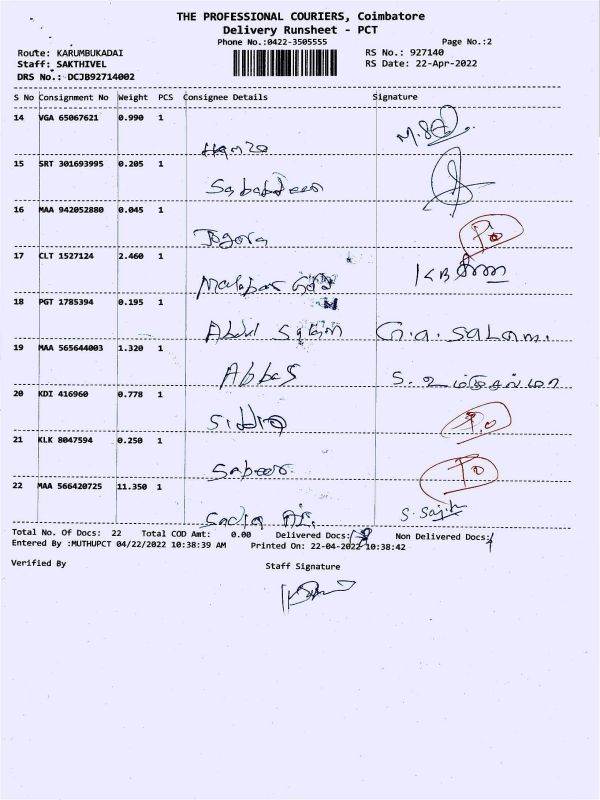 THE PROFESSIONAL COURIERS, Coimbatore
Delivery Runsheet - PCT
Phone No.:0422-3505555 Page No.:2
Route: KARUMBUKADAI RS No.: 927140
Staff: SAKTHIVEL RS Date: 22-Apr-2022
DRS No.: DCJB92714002
S No Consignment No Weight PCS Consignee Details Signature
14 VGA 65067621 0.990 1
Hamza
15 SRT 301693995 0.205 1
16 MAA 942052880 0.045 1
P.O
17 CLT 1527124 2.460 1
Malabar Gold
18 PGT 1785394 0.195 1
Abdul Salam G.a. Salam.
19 MAA 565644003 1.320 1
Abbas
20 KDI 416960 0.778 1
Siddiq P.O
21 KLK 8047594 0.250 1
Sabeer P.O
22 MAA 566420725 11.350 1
S. Sajith
Total No. Of Docs: 22 Total COD Amt: 0.00 Delivered Docs: Non Delivered Docs:
Entered By :MUTHUPCT 04/22/2022 10:38:39 AM Printed On: 22-04-2022 10:38:42
Verified By Staff Signature